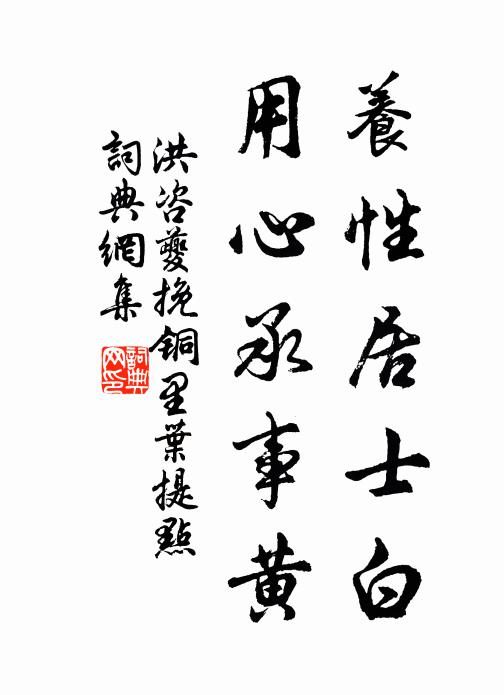 養性居士白
用心承事黄
洪咨夔挽銅里葉提點
詞典網集
詞典網印